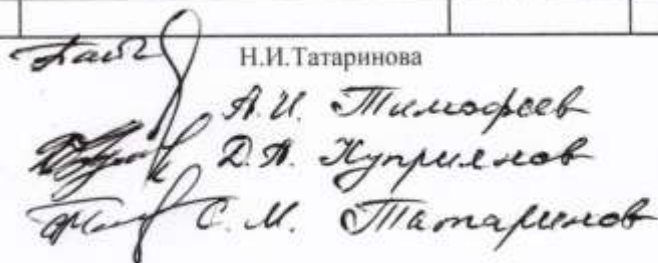 Н.И.Татаринова
А.И. Тимофеев
Д.А. Куприянов
С.М. Татаринов